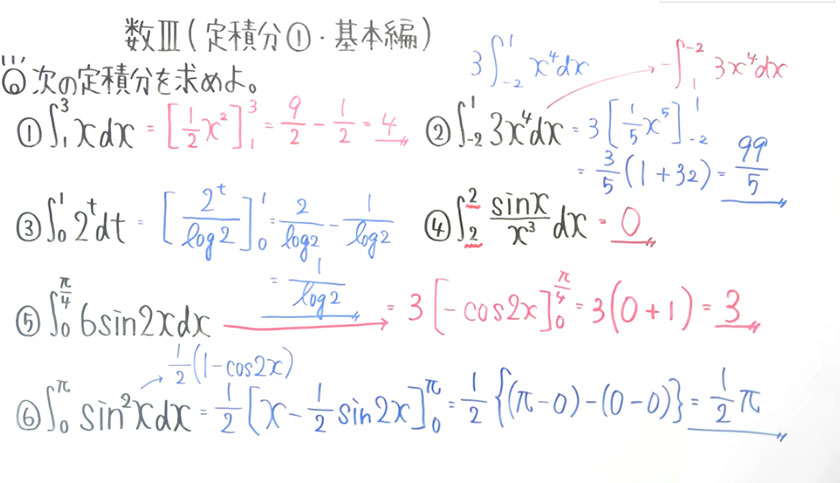 数Ⅲ(定積分①・基本編)
◎次の定積分を求めよ。
3∫₋₂¹ x⁴dx → -∫₁⁻² 3x⁴dx
① ∫₁³ xdx = [1/2 x²]₁³ = 9/2 - 1/2 = 4
② ∫₋₂¹ 3x⁴dx = 3[1/5 x⁵]₋₂¹
= 3/5 (1+32) = 99/5
③ ∫₀¹ 2ᵗdt = [2ᵗ/log2]₀¹ = 2/log2 - 1/log2
= 1/log2
④ ∫₂² sinx/x³ dx = 0
⑤ ∫₀^(π/4) 6sin2xdx → = 3[-cos2x]₀^(π/4) = 3(0+1) = 3
1/2 (1-cos2x)
⑥ ∫₀^π sin²xdx = 1/2 [x - 1/2 sin2x]₀^π = 1/2 {(π-0)-(0-0)} = 1/2 π